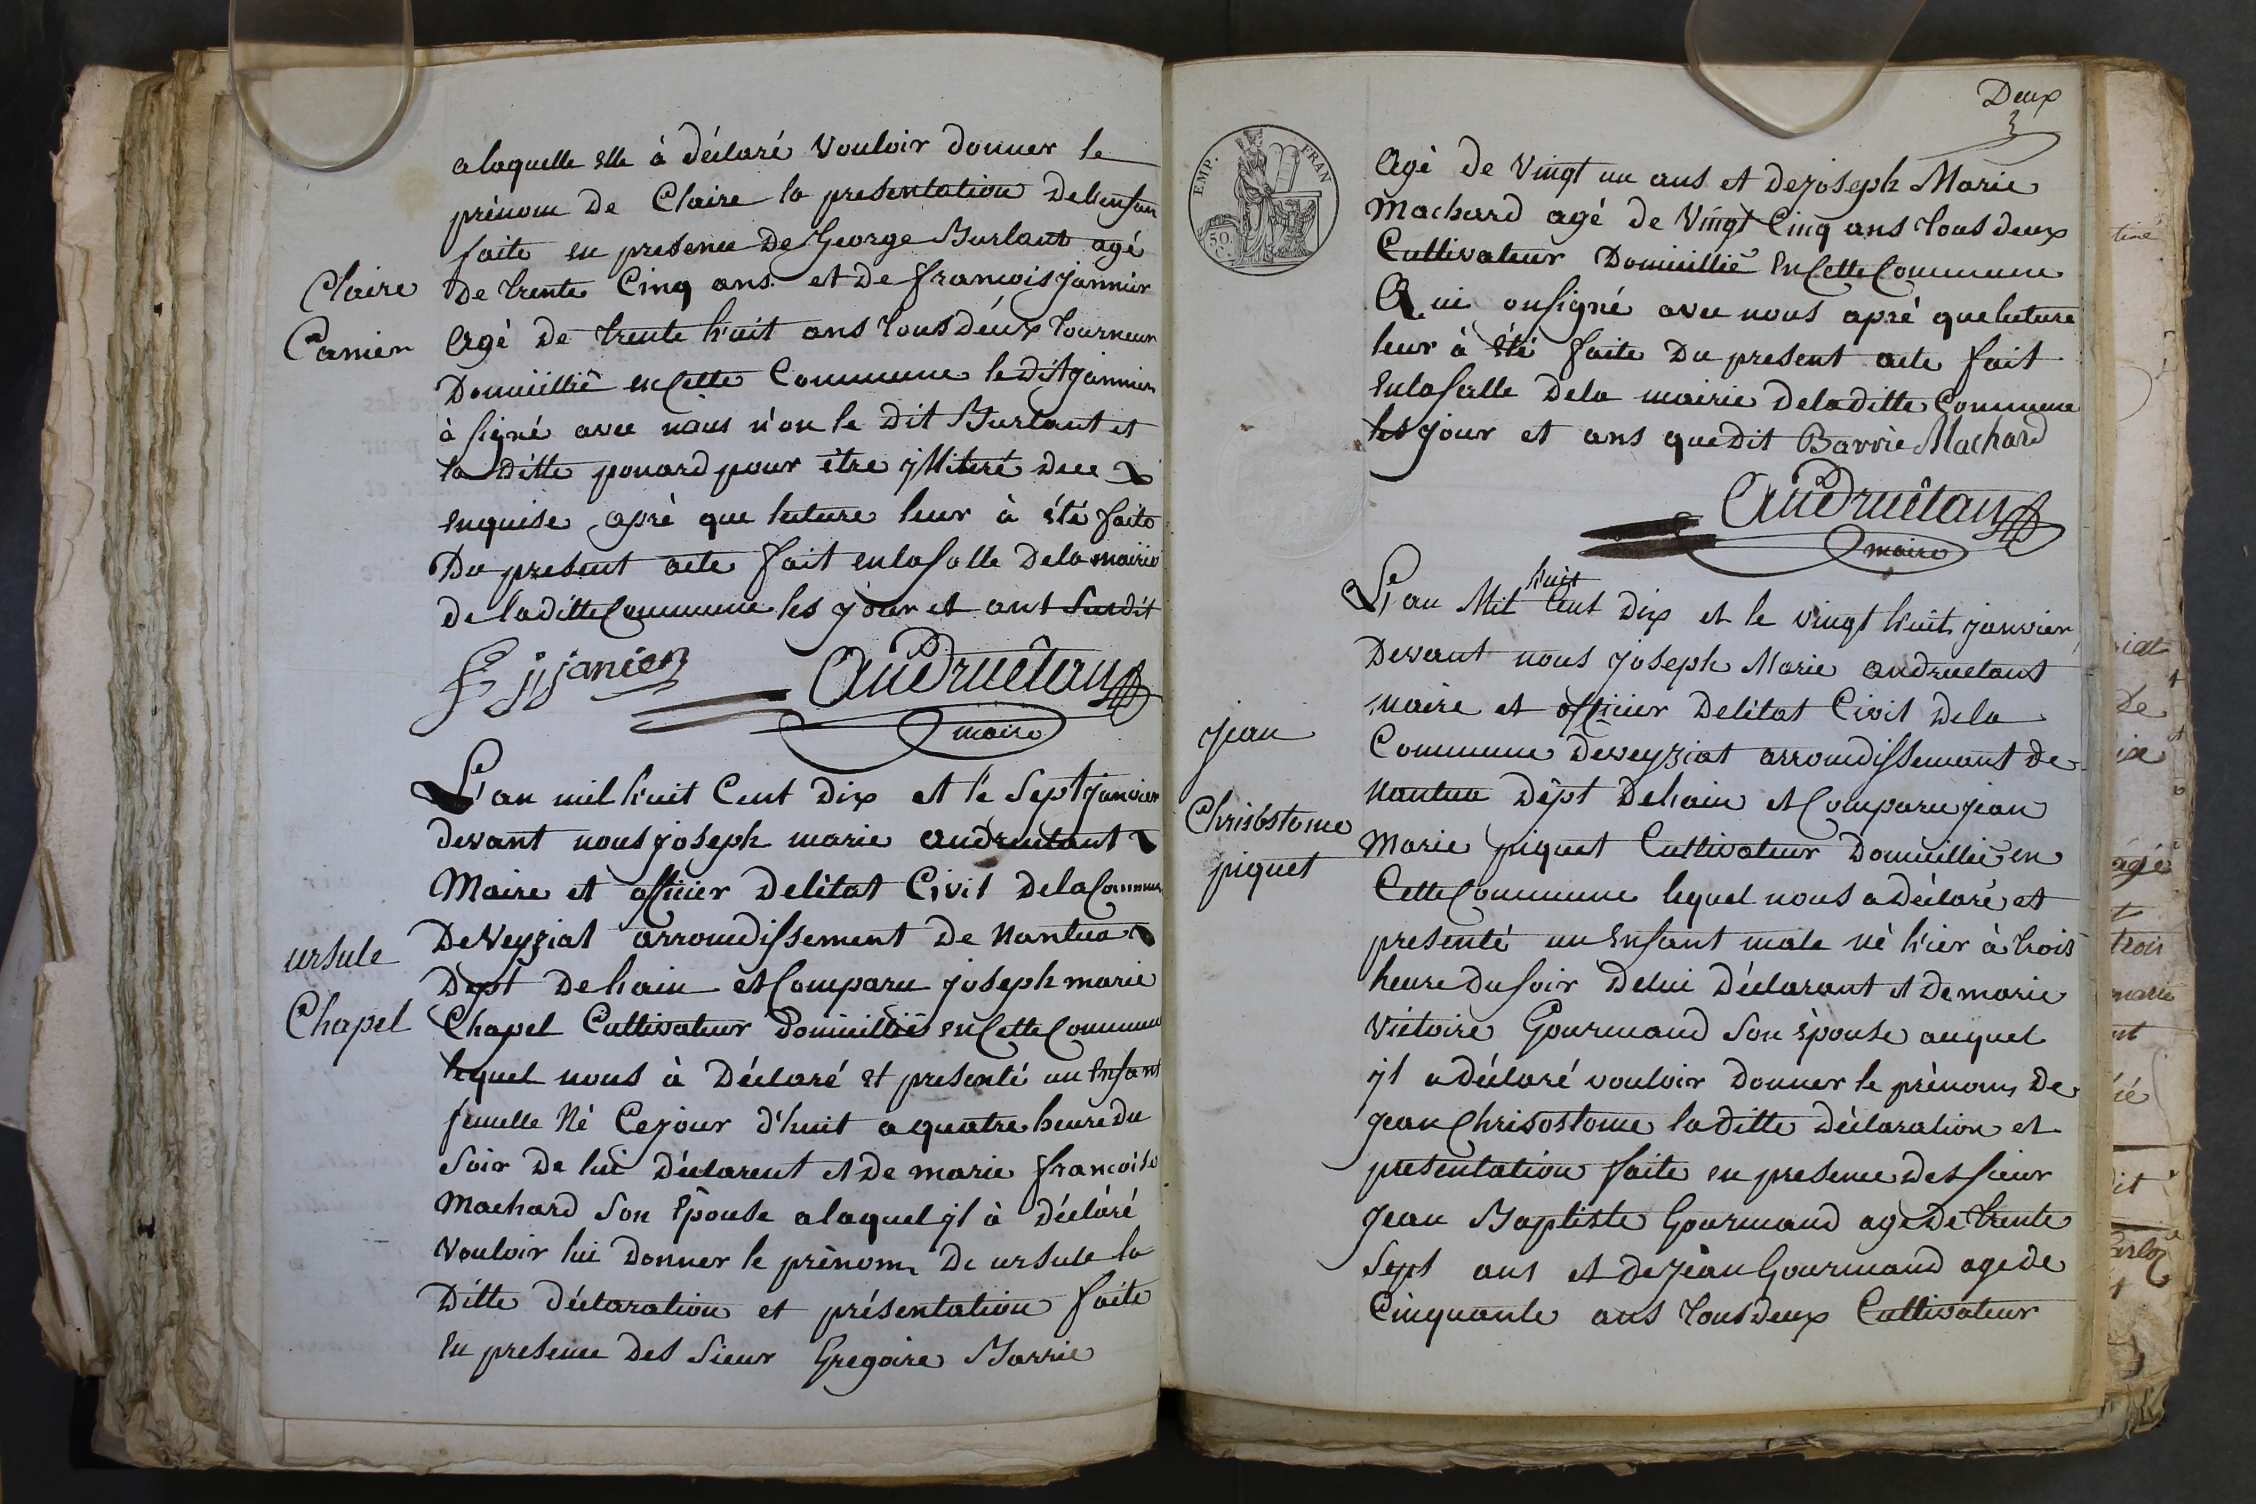 a laquelle elle à déclaré vouloir donner le
prénom de Claire la presentation de lenfan
faite en presence de George Burlant agé
Claire
de trente Cinq ans et de francois jannier
Canier
agé de trente huit ans tous deux tourneur
Domicillié en Cette Commune le dit jannier
à signé avec nous n'on le dit Burlant et
la ditte ponard pour être jlliteré dece
enquise apré que lecture leur à été faite
Du present acte fait en la salle de la mairie
de la ditte Commune les jour et ant susdit
f jj janier Andruétan
maire
L'an mil huit Cent dix et le sept janvier
devant nous joseph marie andruetant
Maire et officier de létat Civil de la Commune
De Veyziat arrondissement de Nantua
ursule
Dept de hain est Comparu joseph marie
Chapel
Chapel Cultivateur Domicillié en Cette Commune
lequel nous à Déclaré et presenté un Enfant
femelle Né Ce jour d'huit a quatre heure du
soir de lui déclarent et de marie francoise
Machard son Epouse a laquel jl à déclaré
vouloir lui donner le prénom de ursule la
Ditte déclaration et présentation faite
en presence des sieur Gregoire Barrie
Deux
EMP. FRAN
50 C.
agé de vingt un ans et de joseph Marie
Machard agé de vingt Cinq ans tous deux
Cultivateur Domicillié en Cette Commune
Qui on signé avec nous apré que lecture
leur à été faite du present acte fait
en la salle de la mairie de la ditte Commune
les jour et ans que dit Barrie Machard
Andruétan
maire
huit
L'an Mil Cent dix et le vingt huit janvier
Devant nous joseph Marie andruetant
maire et officier de létat Civil de la
jean
Commune de veyziat arrondissemant de
Nantua dépt de hain et Comparu jean
Chrisostome
Marie piquet Cultivateur Domicillié en
piquet
Cette Commune lequel nous a déclaré et
presenté un Enfant male né hier à trois
heure du soir de lui déclarant et de marie
victoire Gourmand son épouse auquel
jl a déclaré vouloir donner le prénom de
jean Chrisostome la ditte déclaration et
presentation faite en presence des sieur
jean Baptiste Gourmand agé de trente
sept ans et de jean Gourmand age de
Cinquante ans tous deux Cultivateur